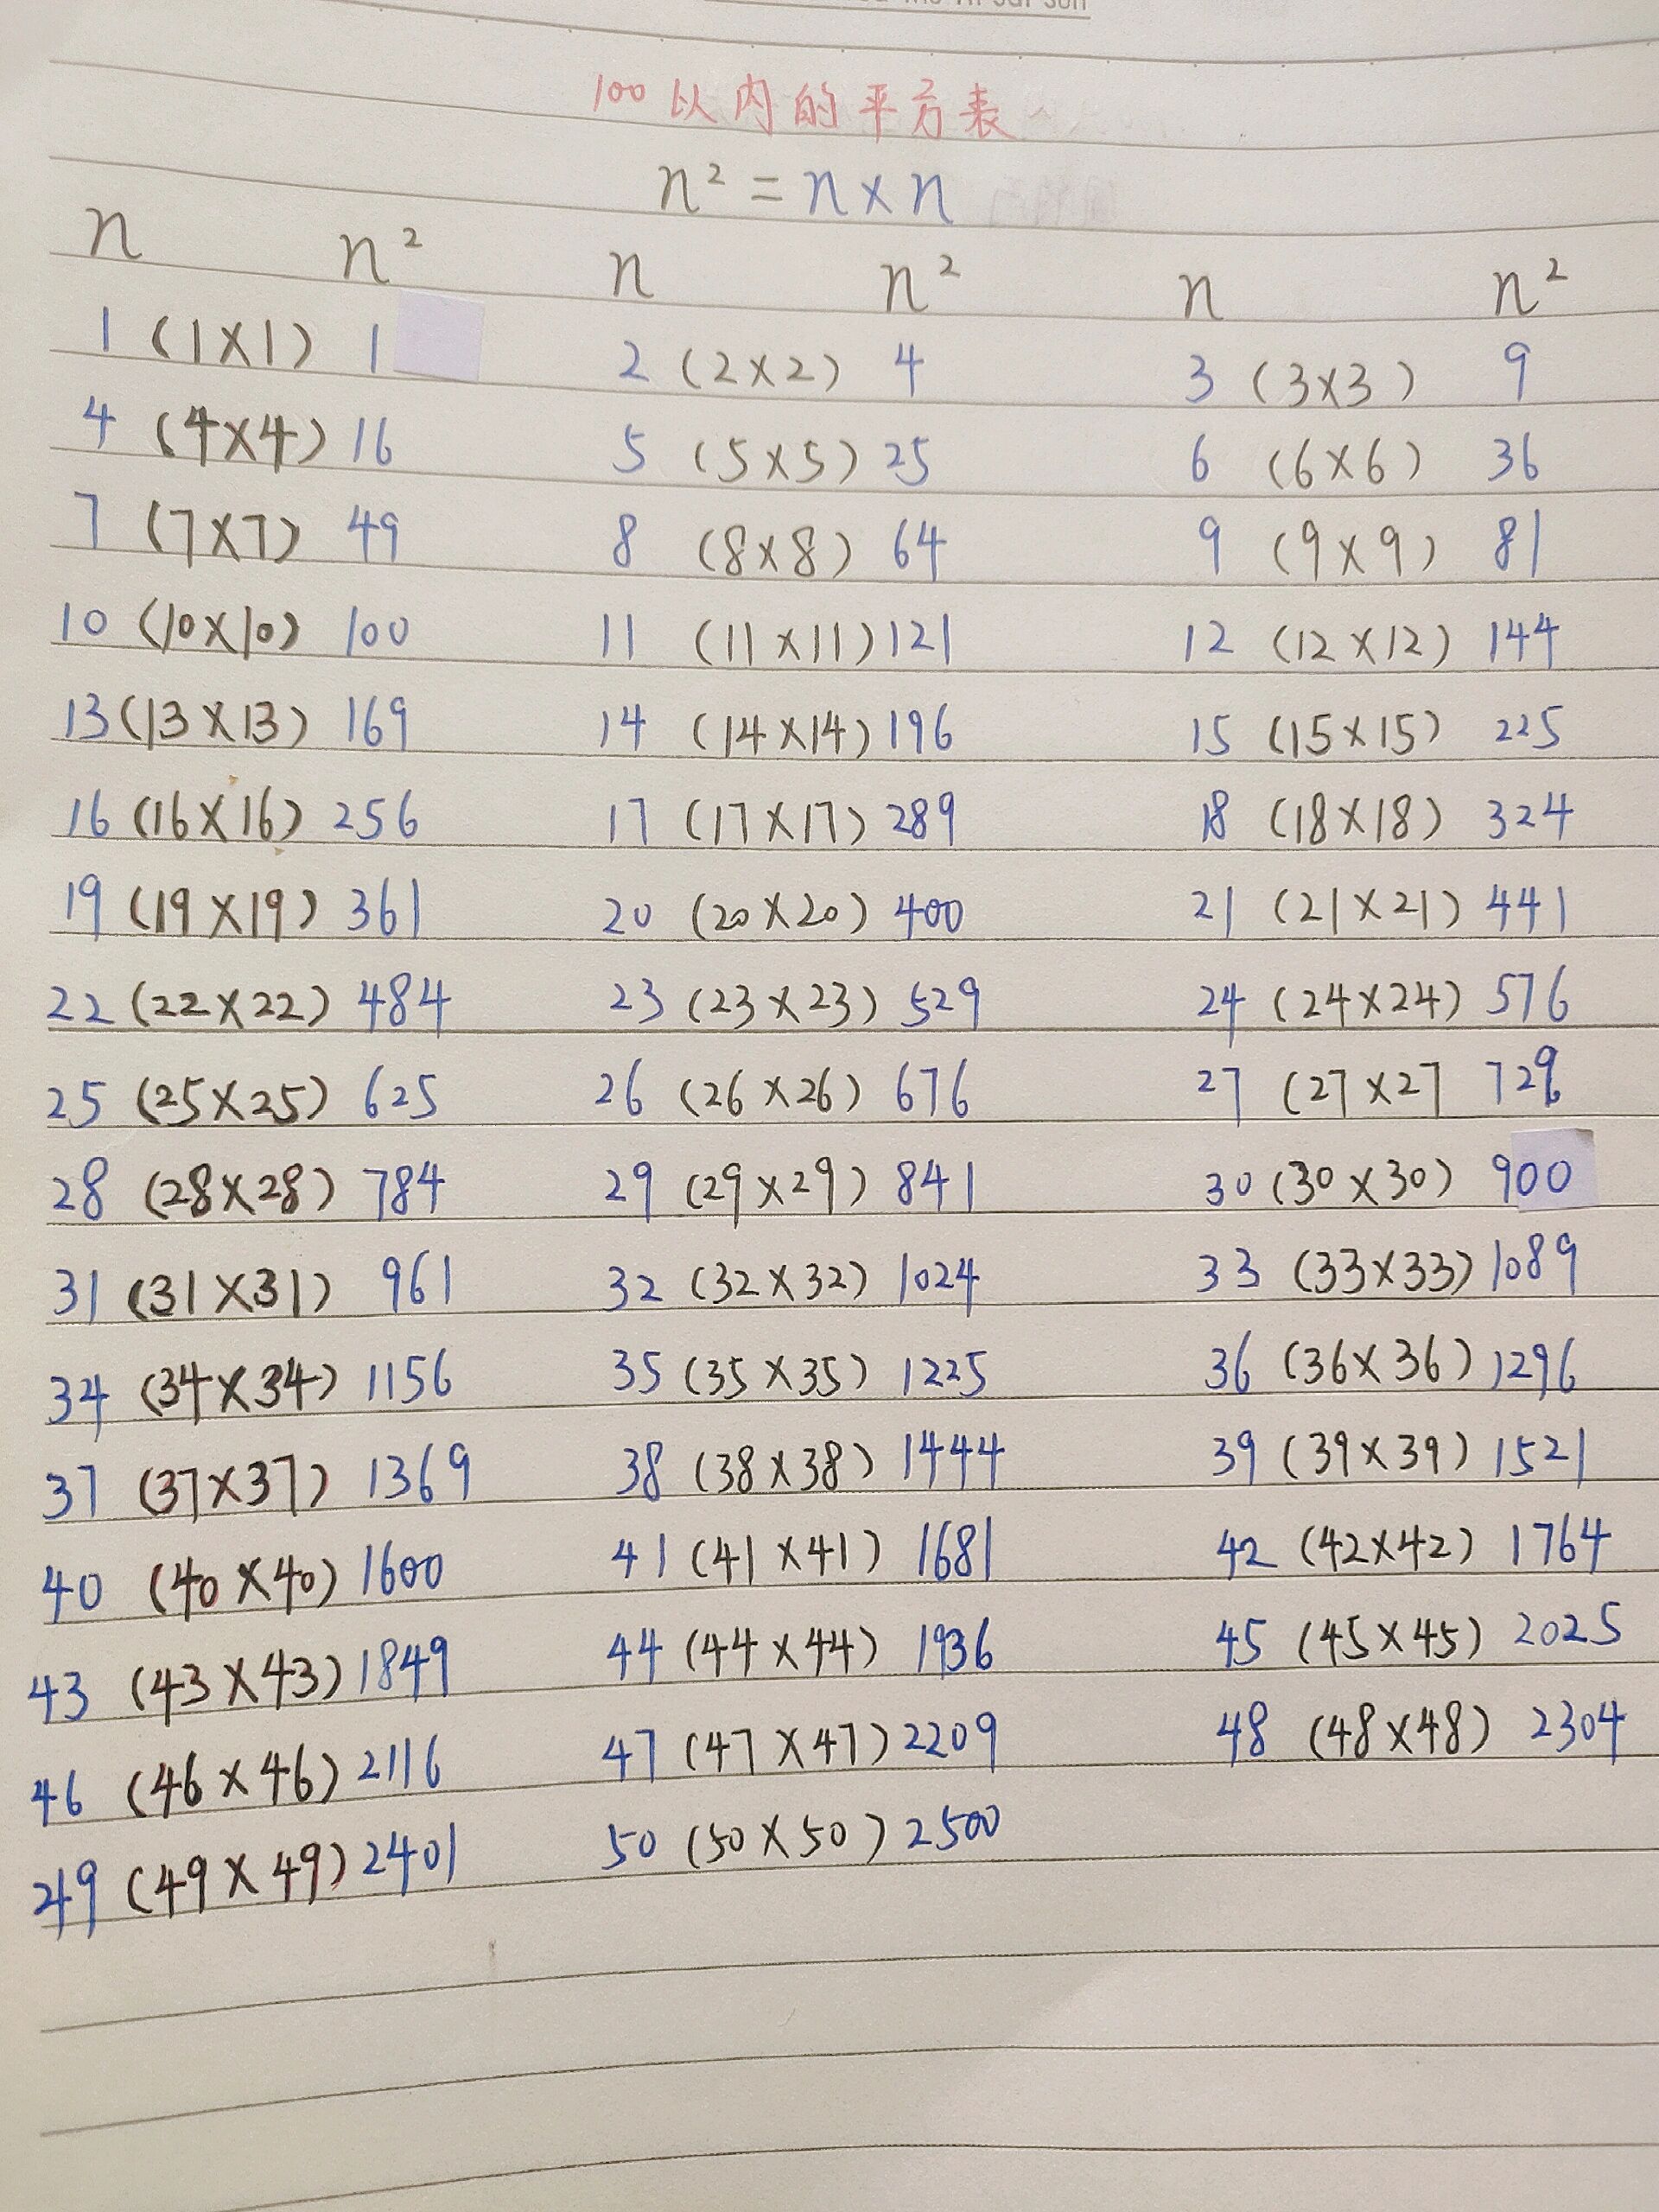 100以内的平方表
n² = n × n
n n² n n² n n²
1 (1×1) 1 2 (2×2) 4 3 (3×3) 9
4 (4×4) 16 5 (5×5) 25 6 (6×6) 36
7 (7×7) 49 8 (8×8) 64 9 (9×9) 81
10 (10×10) 100 11 (11×11) 121 12 (12×12) 144
13 (13×13) 169 14 (14×14) 196 15 (15×15) 225
16 (16×16) 256 17 (17×17) 289 18 (18×18) 324
19 (19×19) 361 20 (20×20) 400 21 (21×21) 441
22 (22×22) 484 23 (23×23) 529 24 (24×24) 576
25 (25×25) 625 26 (26×26) 676 27 (27×27 729
28 (28×28) 784 29 (29×29) 841 30 (30×30) 900
31 (31×31) 961 32 (32×32) 1024 33 (33×33) 1089
34 (34×34) 1156 35 (35×35) 1225 36 (36×36) 1296
37 (37×37) 1369 38 (38×38) 1444 39 (39×39) 1521
40 (40×40) 1600 41 (41×41) 1681 42 (42×42) 1764
43 (43×43) 1849 44 (44×44) 1936 45 (45×45) 2025
46 (46×46) 2116 47 (47×47) 2209 48 (48×48) 2304
49 (49×49) 2401 50 (50×50) 2500